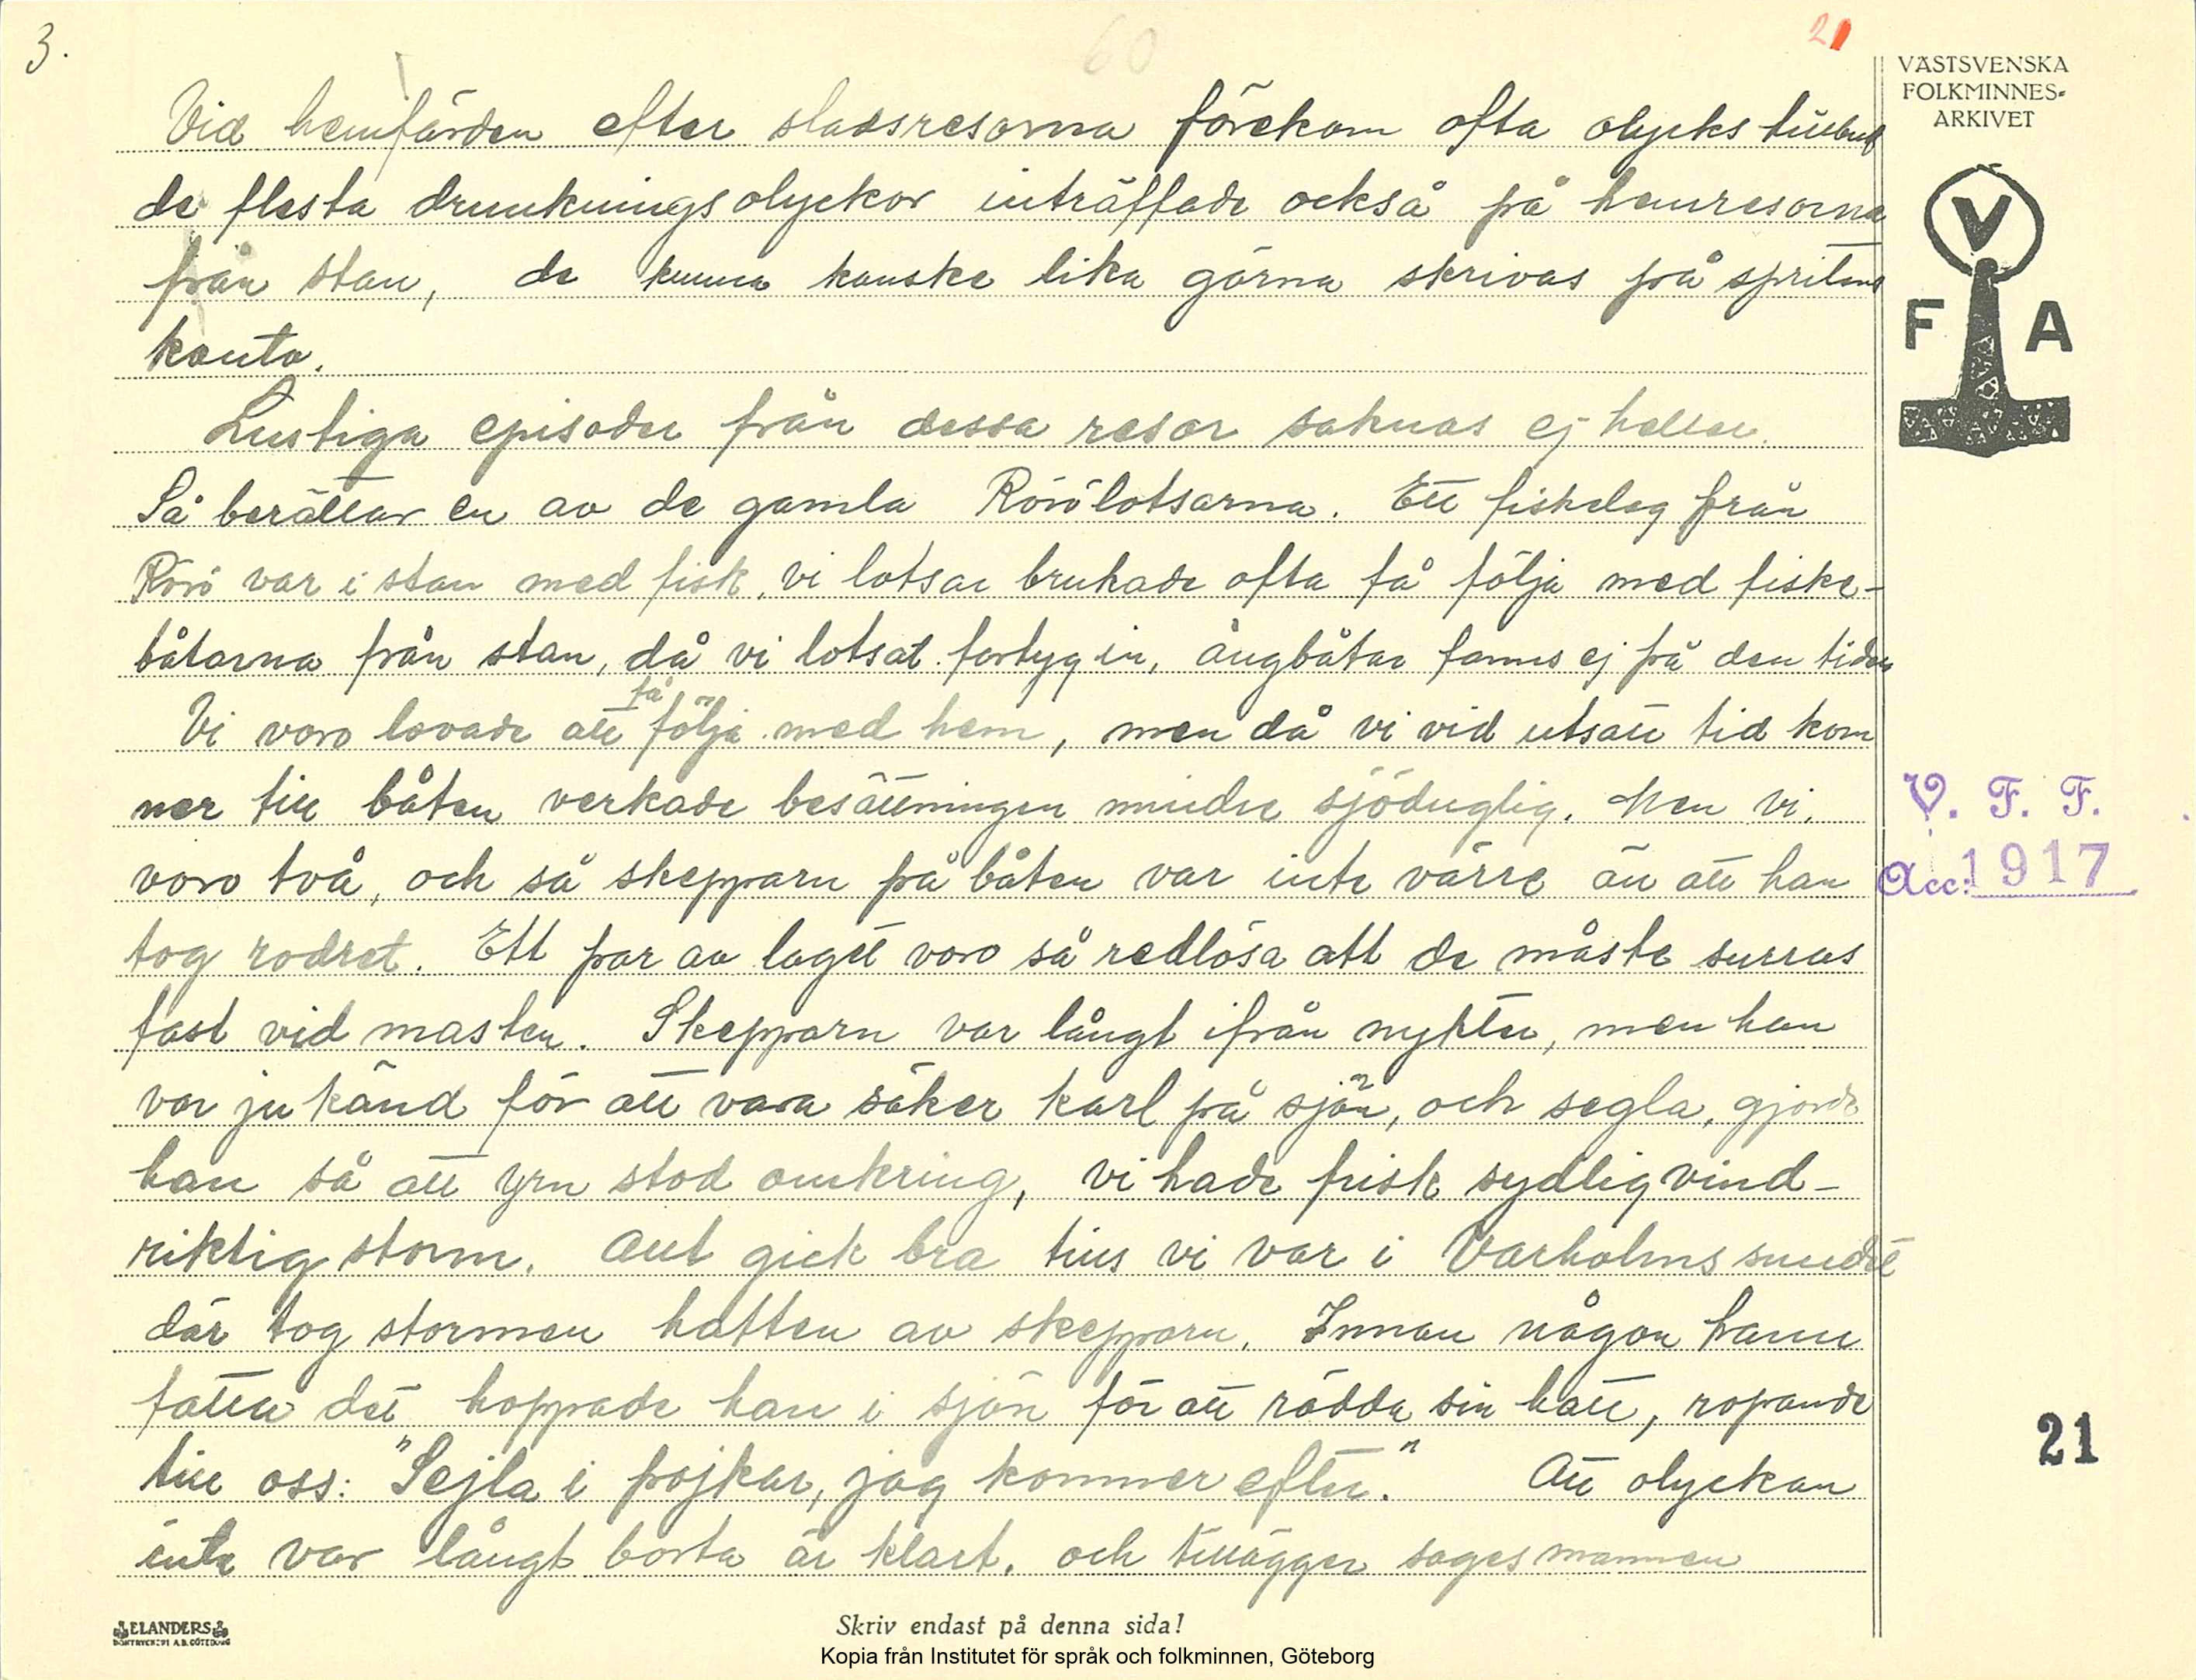 3.
60
21
VÄSTSVENSKA
FOLKMINNES-
ARKIVET
Vid hemfärden efter stadsresorna förekom ofta olyckstillbud
de flesta drunkningsolyckor inträffade också på hemresorna
från stan, de kunna kanske lika gärna skrivas på spritens
konto.
V
F A
Lustiga episoder från dessa resor saknas ej heller.
Så berättar en av de gamla Rörölotsarna. Ett fiskelag från
Rörö var i stan med fisk, vi lotsar brukade ofta få följa med fiske-
båtarna från stan, då vi lotsat fartyg in, ångbåtar fanns ej på den tiden
Vi voro lovade att få följa med hem, men då vi vid utsatt tid kom
ner till båten verkade besättningen mindre sjöduglig. Men vi
V. F. F.
voro två, och så skepparn på båten var inte värre än att han
Acc: 1917
tog rodret. Ett par av laget voro så redlösa att de måste surras
fast vid masten. Skepparn var långt ifrån nykter, men han
var ju känd för att vara säker karl på sjön, och segla, gjorde
han så att yrn stod omkring, vi hade frisk sydlig vind -
riktig storm. Allt gick bra tills vi var i Varholmssundet
där tog stormen hatten av skepparn. Innan någon hann
fatta det hoppade han i sjön för att rädda sin hatt, ropande
till oss: "Sejla i pojkar, jag kommer efter." Att olyckan
21
inte var långt borta är klart, och tillägger sagesmannen
ELANDERS
BOKTRYCKERI A.B. GÖTEBORG
Skriv endast på denna sida!
Kopia från Institutet för språk och folkminnen, Göteborg